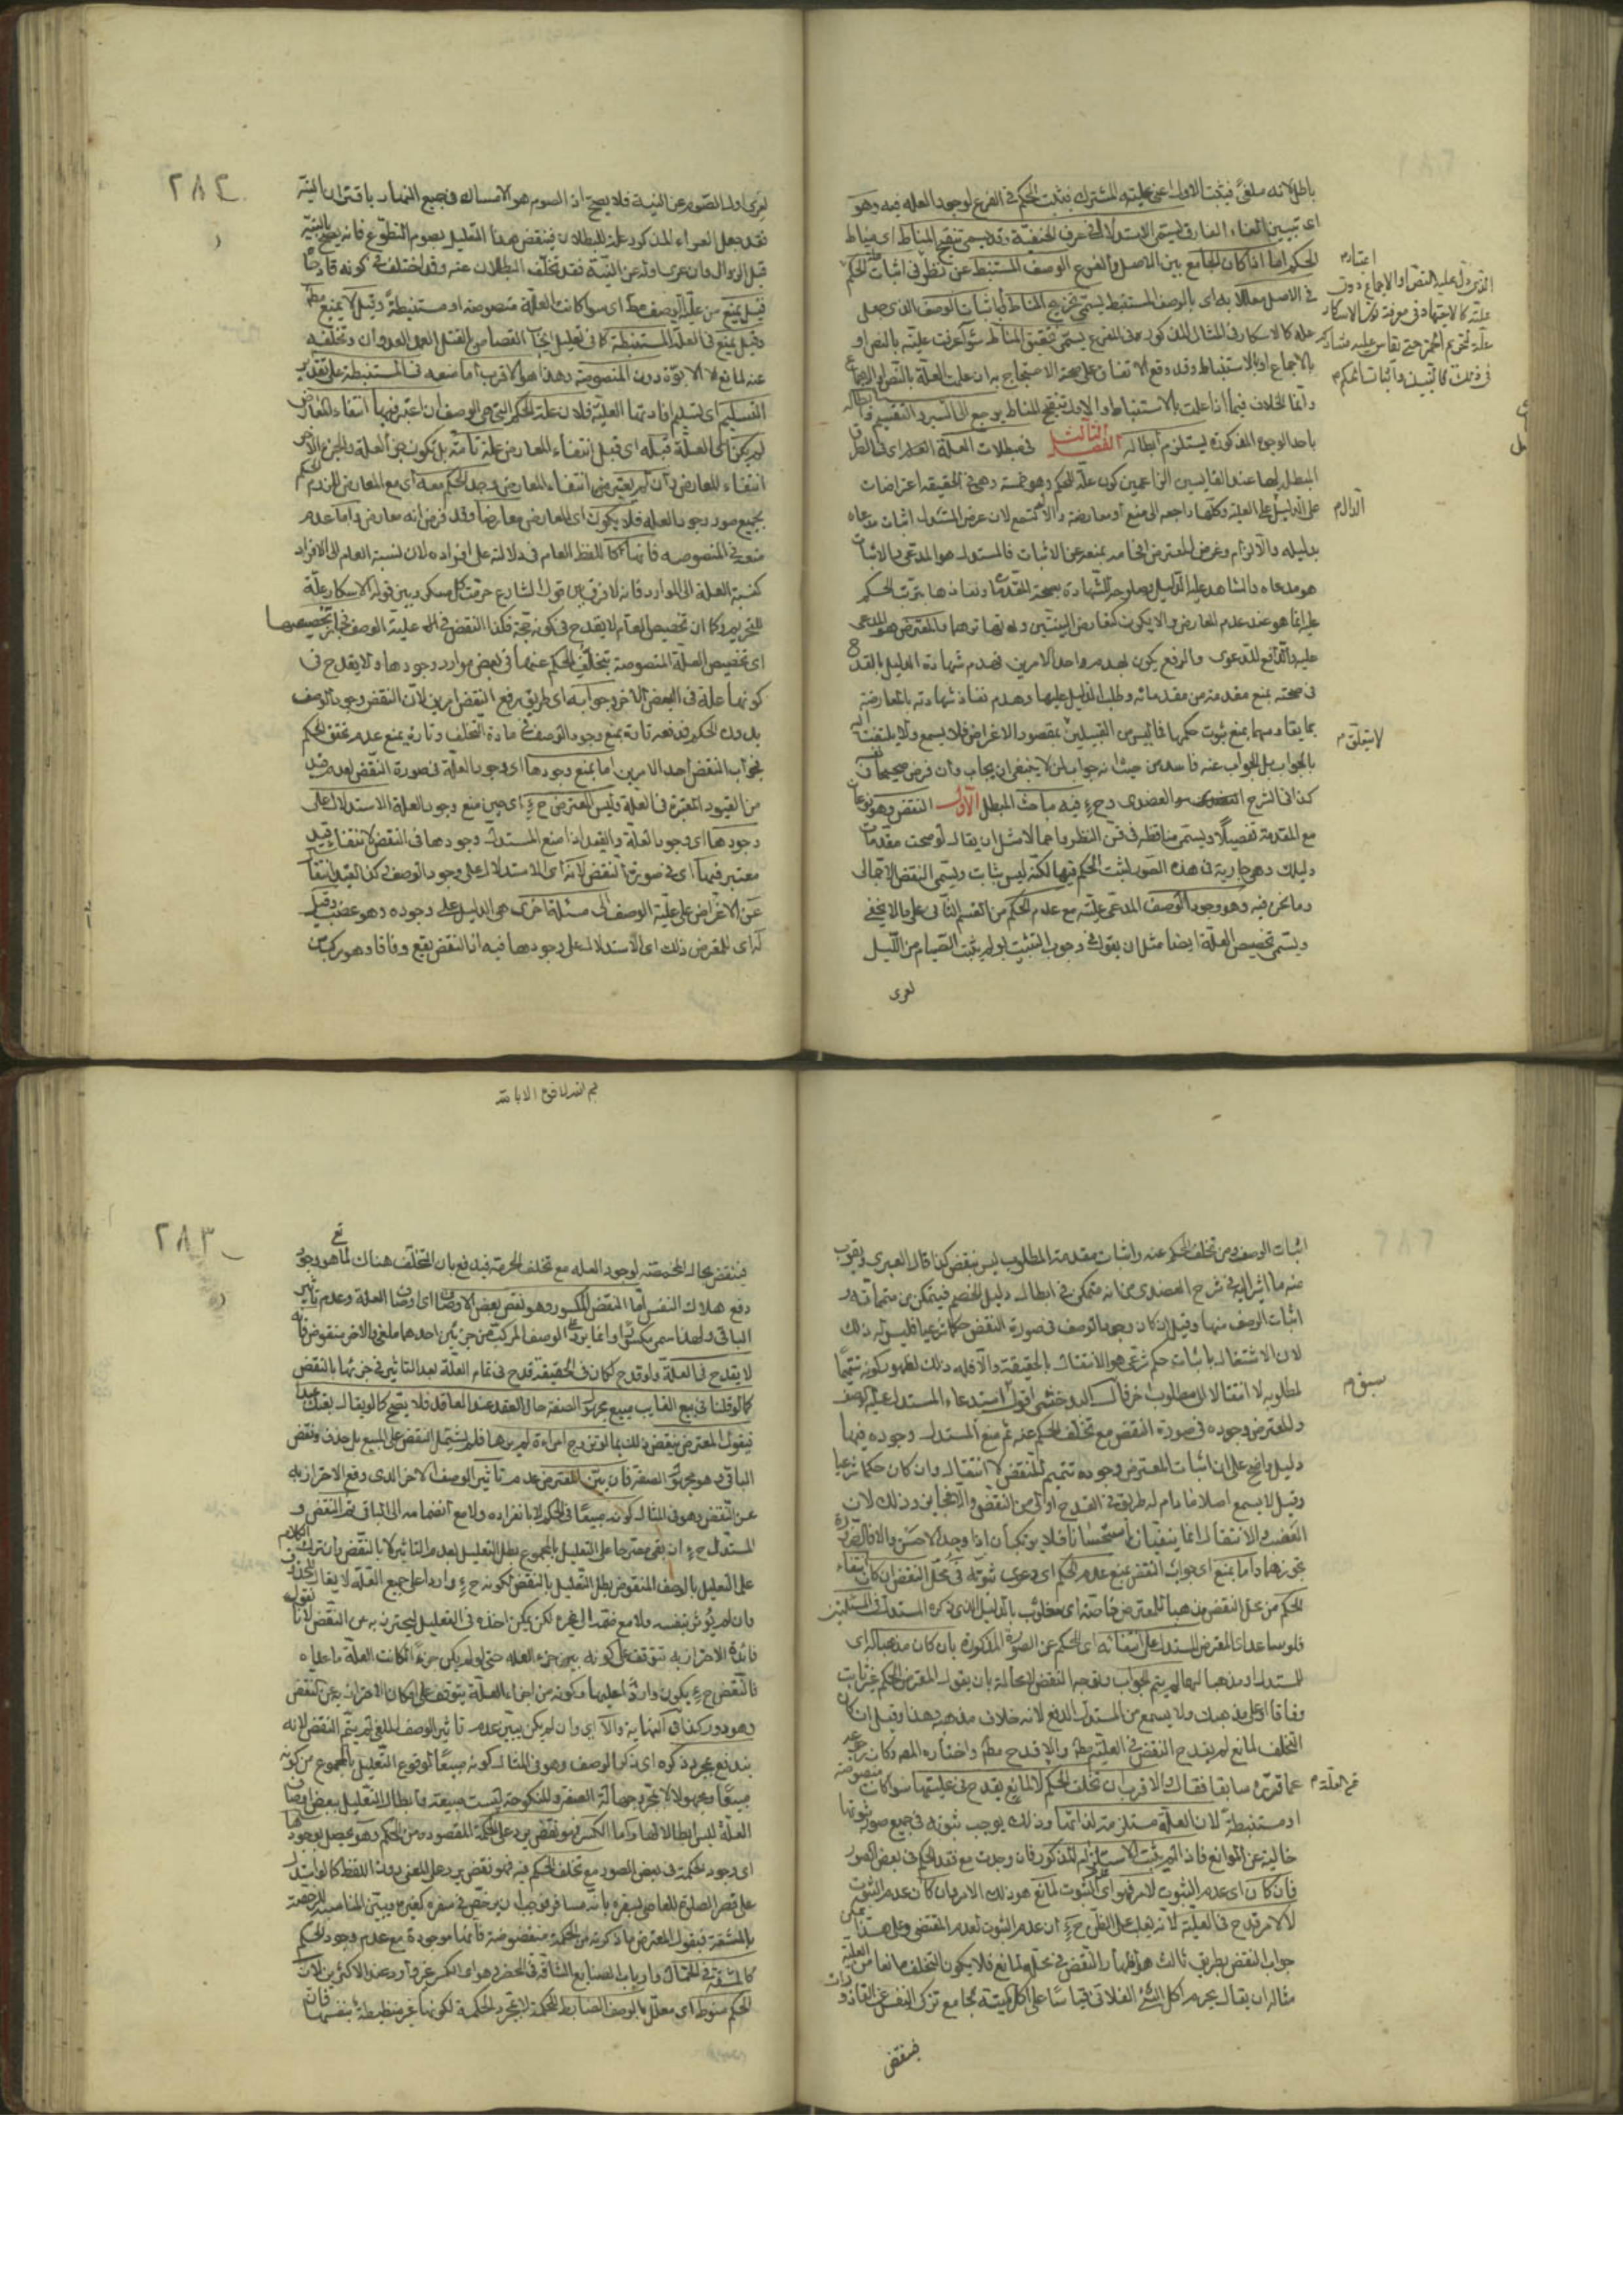 باطل لانه ملغى فيثبت الاول اعنى علية المشترك فيثبت الحكم في الفرع لوجود العلة فيه وهو
اى تبيين الغاء الفارق ليسمى الاستدلال في عرف الحنفية وقد يسمى تنقيح المناط اى مناط
الحكم اما اذا كان الجامع بين الاصل والفرع الوصف المستنبط عن نظر في اثبات علة الحكم
في الاصل معللا به اى بالوصف المستنبط يسمى تخريج المناط واما اثبات الوصف الذى جعل
علة كالاسكار في المثال المذكور في الفرع يسمى تحقيق المناط سواء عرفت عليته بالنص او
بالاجماع او بالاستنباط وقد وقع الاتفاق على صحة الاحتجاج به ان علمت العلة بالنص او الاجماع
وانما الخلاف فيما اذا علمت بالاستنباط والاول تنقيح المناط يرجع الى السبر والتقسيم
باحد الوجوه المذكورة يستلزم ابطاله الفصل الثالث في مبطلات العلة
المبطل لها عند القايسين الزاعمين كون علة للحكم وهو خمسة وهى في الحقيقة اعتراضات
على الدليل على العلية وكلها راجعة الى منع او معارضة والا لم تسمع لان غرض المستدل اثبات مدعاه
بدليله والالزام وغرض المعترض افحامه بمنعه عن الاثبات فالمستدل هو المدعى بالاثبات
هو مدعاه والشاهد عليه الدليل وصلوحه للشهادة بصحة المقدمات ونفاذها بترتب الحكم
عليه انما هو عند عدم المعارض والا يكون كتعارض البينتين والمعترض هو المدعى
عليه والدافع للدعوى والدفع يكون بهدم واحد الامرين فهدم شهادة الدليل بالقدح
في صحته بمنع مقدمة من مقدماته وطلب الدليل عليها وهدم نفاذ شهادته بالمعارضة
بما يقاومها بمنع ثبوت حكمها فما ليس من القبيلين بمقصود الاعتراض فلا يسمع ولا يلتفت اليه
بالجواب بل الجواب عنه فاسد من حيث انه جواب لمن لا ينبغى ان يجاب وان فرض صحيحا
كذا في الشرح العضدى وح فيه مباحث المبطل الاول النقض وهو نوعان
مع المقدمة تفصيلا ويسمى مناقضة في فن النظر واجمالا مثل ان يقال لو صحت مقدمات
دليلك وهى جارية في هذه الصورة لثبت الحكم فيها لكنه ليس بثابت ويسمى النقض الاجمالى
وما نحن فيه وهو وجود الوصف المدعى عليته مع عدم الحكم من القسم الثانى على ما لا يخفى
ويسمى تخصيص العلة ايضا مثل ان يقول في وجوب التبييت لو لم يثبت الصيام من الليل
لعرى
اعتباره
الذى دل عليه النص او الاجماع دون
عليته كالاجتهاد في معرفة كون الاسكار
علة لتحريم الخمر حتى يقاس عليه مشاركه
في ذلك كالنبيذ واثبات الحكم
الزام
لا يتعلق م
٢٨٢
لعرى اول الصوم عن النية فلا يصح اذ الصوم هو الامساك في جميع النهار باقتران النية
فقد جعل العراء المذكور علة للبطلان فينقض هذا التعليل بصوم التطوع فانه يصح بالنية
قبل الزوال وان عرى اوله عن النية فقد تخلف البطلان عنه وقد اختلف في كونه قادحا
فقيل يمنع من علية الوصف مطلقا اى سواء كانت العلة منصوصة او مستنبطة وقيل لا يمنع مطلقا
وقيل يمنع في العلة المستنبطة كما في تعليل ايجاب القصاص بالقتل العمد العدوان وتخلفه
عنه لمانع كالابوة دون المنصوصة وهذا هو الاقرب اما منعه في المستنبطة على تقدير
التسليم اى تسليم افادتها العلية فلان علة الحكم التى هى الوصف ان اعتبر فيها انتفاء المعارض
لم يكن اى العلة قبله اى قبل انتفاء المعارض علة تامة بل يكون جزء العلة والجزء الاخر
انتفاء المعارض وان لم يعتبر فيها انتفاء المعارض وجد الحكم معه اى مع المعارض للزوم الحكم
بجميع صور وجود العلة فلا يكون اى المعارض معارضا وقد فرض انه معارض واما عدم
منعه في المنصوصة فانها كاللفظ العام في دلالته على افراده لان نسبة العام الى الافراد
كنسبة العلة الى الموارد فانه لا فرق بين قول الشارع حرمت كل مسكر وبين قوله الاسكار علة
للتحريم وكما ان تخصيص العام لا يقدح في كونه حجة فكذا النقض في علية الوصف لتخصيصها
اى تخصيص العلة المنصوصة بتخلف الحكم عنها في بعض موارد وجودها ولا يقدح في
كونها علة في البعض الاخر وجوابه اى طريق رفع النقض امرين لان النقض وجود الوصف
بدون الحكم فدفعه تارة بمنع وجود الوصف في مادة التخلف وتارة بمنع عدم تحقق الحكم
فجواب النقض احد الامرين اما بمنع وجودها اى وجود العلة في صورة النقض لعدم قيد
من القيود المعتبرة في العلة وليس للمعترض ح اى حين منع وجود العلة الاستدلال على
وجودها اى وجود العلة والقيد اذا منع المستدل وجودها في النقض لانتفاء قيد
معتبر فيها اى في صورة النقض لانه اى الاستدلال على وجود الوصف
عن الاعتراض على علية الوصف الى مسئلة اخرى هى الدليل على وجوده وهو غصب وقيل
له اى للمعترض ذلك اى الاستدلال على وجودها فيه اذ النقض يقع وفاقا وهو مركب من
اثبات الوصف ومن تخلف الحكم عنه واثبات مقدمة المطلوب ليس بنقض كذا قال العبرى
منه ما اشير اليه في شرح العضدى من انه متمكن في ابطال دليل الخصم فيتمكن من متمماته و
اثبات الوصف منها وقيل ان كان وجود الوصف في صورة النقض حكما شرعيا فليس له ذلك
لان الاشتغال باثبات حكم شرعى هو الانتقال بالحقيقة والا فله ذلك لظهور كونه تتميما
لمطلوبه لا انتقالا الى مطلوب اخر قال البدخشى اقول استدعاء المستدل علية الوصف
وللمعترض وجوده في صورة النقض مع تخلف الحكم عنه ثم منع المستدل وجوده فيها
دليل واضح على ان اثبات المعترض وجوده تتميم للنقض لا انتقال وان كان حكما شرعيا
وقيل لا يسمع اصلا ما دام له طريق في القدح اولى من النقض والا فجاز وذلك لان
الغصب والانتقال انما ينفيان استحسانا فلا يرتكبان اذا وجد الاحسن والا فالضرورة
تجوزهما واما بمنع اى جواب النقض بمنع عدم الحكم اى دعوى ثبوته في محل النقض ان كان انتفاء
الحكم من محل النقض مذهبا للمعترض خاصة
فلو ساعد اى المعترض المستدل على انتفائه اى الحكم عن الصورة المذكورة بان كان مذهبا له اى
للمستدل او مذهبا لهما لم يتم الجواب وتوجه النقض لا محالة بان يقول المعترض الحكم غير ثابت
وفاقا او على مذهبك ولا يسمع من المستدل الدفع لانه خلاف مذهبه وهذا وقيل ان كان
التخلف لمانع لم يقدح النقض في العلية مطلقا والا قدح مطلقا واختاره المصنف
عما قرره سابقا فقال الاقرب ان تخلف الحكم لا لمانع يقدح في عليتها سواء كانت منصوصة
او مستنبطة لان العلة مستلزمة لذاتها وذلك يوجب ثبوته في جميع صور ثبوتها
خالية عن الموانع فاذا لم يثبت الاستلزام المذكور فان وجدت مع فقد الحكم في بعض الصور
فان كان اى عدم الثبوت لامر فهو اى الثبوت لمانع هو ذلك الامر وان كان عدم الثبوت
لا لامر قدح في العلية لانه يغلب على الظن ح ان عدم الثبوت لعدم المقتضى وعلى هذا يمكن
جواب النقض بطريق ثالث هو اظهار النقض في محله لمانع فلا يكون التخلف مانعا من العلية
مثاله ان يقال يحرم اكل الشئ الفلانى قياسا على اكل الميتة بجامع تنزيه النفس عن القاذورات
فينقض
سبق م
في العلة م
بسم الله لا قوة الا بالله
٢٨٣
فينقض بحال المخمصة لوجود العلة مع تخلف الحرمة فيدفع بان التخلف هناك لما هو وجوب
دفع هلاك النفس اما النقض المكسور وهو نقض بعض الاوصاف اى اوصاف العلة وعدم تاثير
الباقى ولهذا سمى مكسورا وانما يرد على الوصف المركب من جزئين احدهما ملغى والاخر منقوض فانه
لا يقدح في العلة ولو قدح لكان في الحقيقة قدح في تمام العلة لعدم التاثير في جزئها بالنقض
كما لو قلنا في بيع الغايب مبيع مجهول الصفة حال العقد عند العاقد فلا يصح كما لو يقال بعتك عبدا
فيقول المعترض ينقض ذلك بما لو تزوج امراءة لم يرها فلم يشتمل النقض على المبيع بل حذف ونقض
الباقى وهو مجهول الصفة فان بين المعترض عدم تاثير الوصف الاخر الذى وقع الاحتراز به
عن النقض وهو في المثال كونه مبيعا في الحكم لا بانفراده ولا مع انضمامه الى الباقى تم النقض و
المستدل ح ان بقى مقترحا على التعليل بالمجموع بطل التعليل لعدم التاثير لا بالنقض وان ترك الكلام
على التعليل بالوصف المنقوض بطل التعليل بالنقض لكونه ح واردا على جميع العلة لا يقال
وان لم يؤثر بنفسه ولا مع ضمه الى غيره لكن يمكن اخذه في التعليل ليحترز به عن النقض لانا نقول
فائدة الاحتراز به تتوقف على كونه جزء العلة حتى لو لم يكن جزءا لكانت العلة ما عداه
فالنقض ح يكون واردا عليها وكونه من اجزاء العلة يتوقف على امكان الاحتراز به عن النقض
وهو دور كذا في النهاية والا اى وان لم يكن يبين عدم تاثير الوصف الملغى لم يتم النقض لانه
يندفع بمجرد ذكره اى ذكر الوصف وهو في المثال كونه مبيعا لوقوع التعليل بالمجموع من كونه
مبيعا ومجهولا لا بمجرد جهالة الصفة والمنكوحة ليست مبيعة وابطال التعليل ببعض اوصاف
العلة ليس ابطالا لها واما الكسر فهو نقض يرد على الحكمة المقصودة من الحكم وهو يحصل بوجودها
اى وجود الحكمة في بعض الصور مع تخلف الحكم فيه فهو نقض يرد على المعنى دون اللفظ كما لو استدل
على قصر الصلوة للعاصى بسفره بانه مسافر فوجب ان يترخص في سفره كغيره ويبين المناسبة للرخصة
بالمشقة فيقول المعترض ما ذكرته من الحكمة منقوضة فانها موجودة مع عدم وجود الحكم
كالمشقة في الحمال وارباب الصنايع الشاقة في الحضر وهو اى الكسر غير وارد عند الاكثرين لان
الحكم منوط اى معلل بالوصف الضابط للحكمة لا بمجرد الحكمة لكونها غير منضبطة بنفسها فان